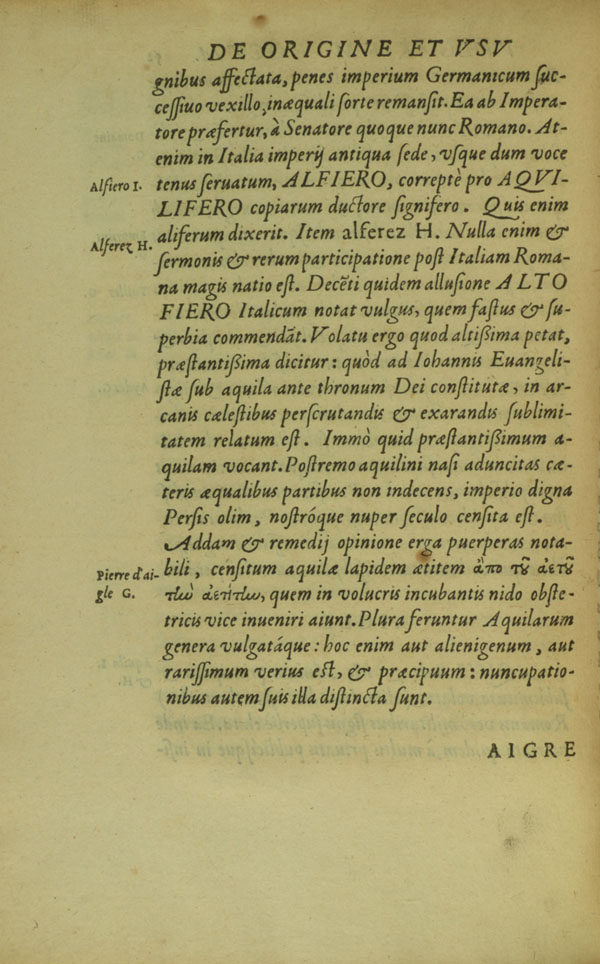 DE ORIGINE ET VSV
gnibus affectata, penes imperium Germanicum ſuc-
ceſſiuo vexillo, inæquali ſorte remanſit. Ea ab Impera-
tore præfertur, à Senatore quoque nunc Romano. At-
enim in Italia imperij antiqua ſede, vſque dum voce
Alfiero I.
tenus ſeruatum, ALFIERO, correptè pro AQVI-
LIFERO copiarum ductore ſignifero. Quis enim
Alferez H.
aliferum dixerit. Item alferez H. Nulla enim &
ſermonis & rerum participatione poſt Italiam Roma-
na magis natio eſt. Decẽti quidem alluſione ALTO
FIERO Italicum notat vulgus, quem faſtus & ſu-
perbia commendãt. Volatu ergo quod altißima petat,
præſtantißima dicitur: quòd ad Iohannis Euangeli-
ſtæ ſub aquila ante thronum Dei conſtitutæ, in ar-
canis cæleſtibus perſcrutandis & exarandis ſublimi-
tatem relatum eſt. Immò quid præſtantißimum a-
quilam vocant. Poſtremo aquilini naſi aduncitas cæ-
teris æqualibus partibus non indecens, imperio digna
Perſis olim, noſtróque nuper ſeculo cenſita eſt.
Addam & remedij opinione erga puerperas nota-
Pierre d'ai-
gle G.
bili, cenſitum aquilæ lapidem ætitem ἀπο τοῦ ἀετοῦ
τὼ ἀετίτω, quem in volucris incubantis nido obſte-
tricis vice inueniri aiunt. Plura feruntur Aquilarum
genera vulgatáque: hoc enim aut alienigenum, aut
rariſſimum verius eſt, & præcipuum: nuncupatio-
nibus autem ſuis illa diſtincta ſunt.
AIGRE